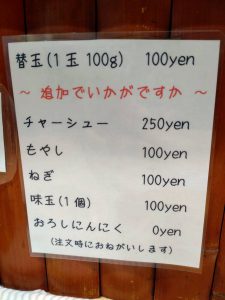 替玉(1玉 100g) 100yen
～ 追加でいかがですか ～
チャーシュー 250yen
もやし 100yen
ねぎ 100yen
味玉(1個) 100yen
おろしにんにく 0yen
(注文時におねがいします)